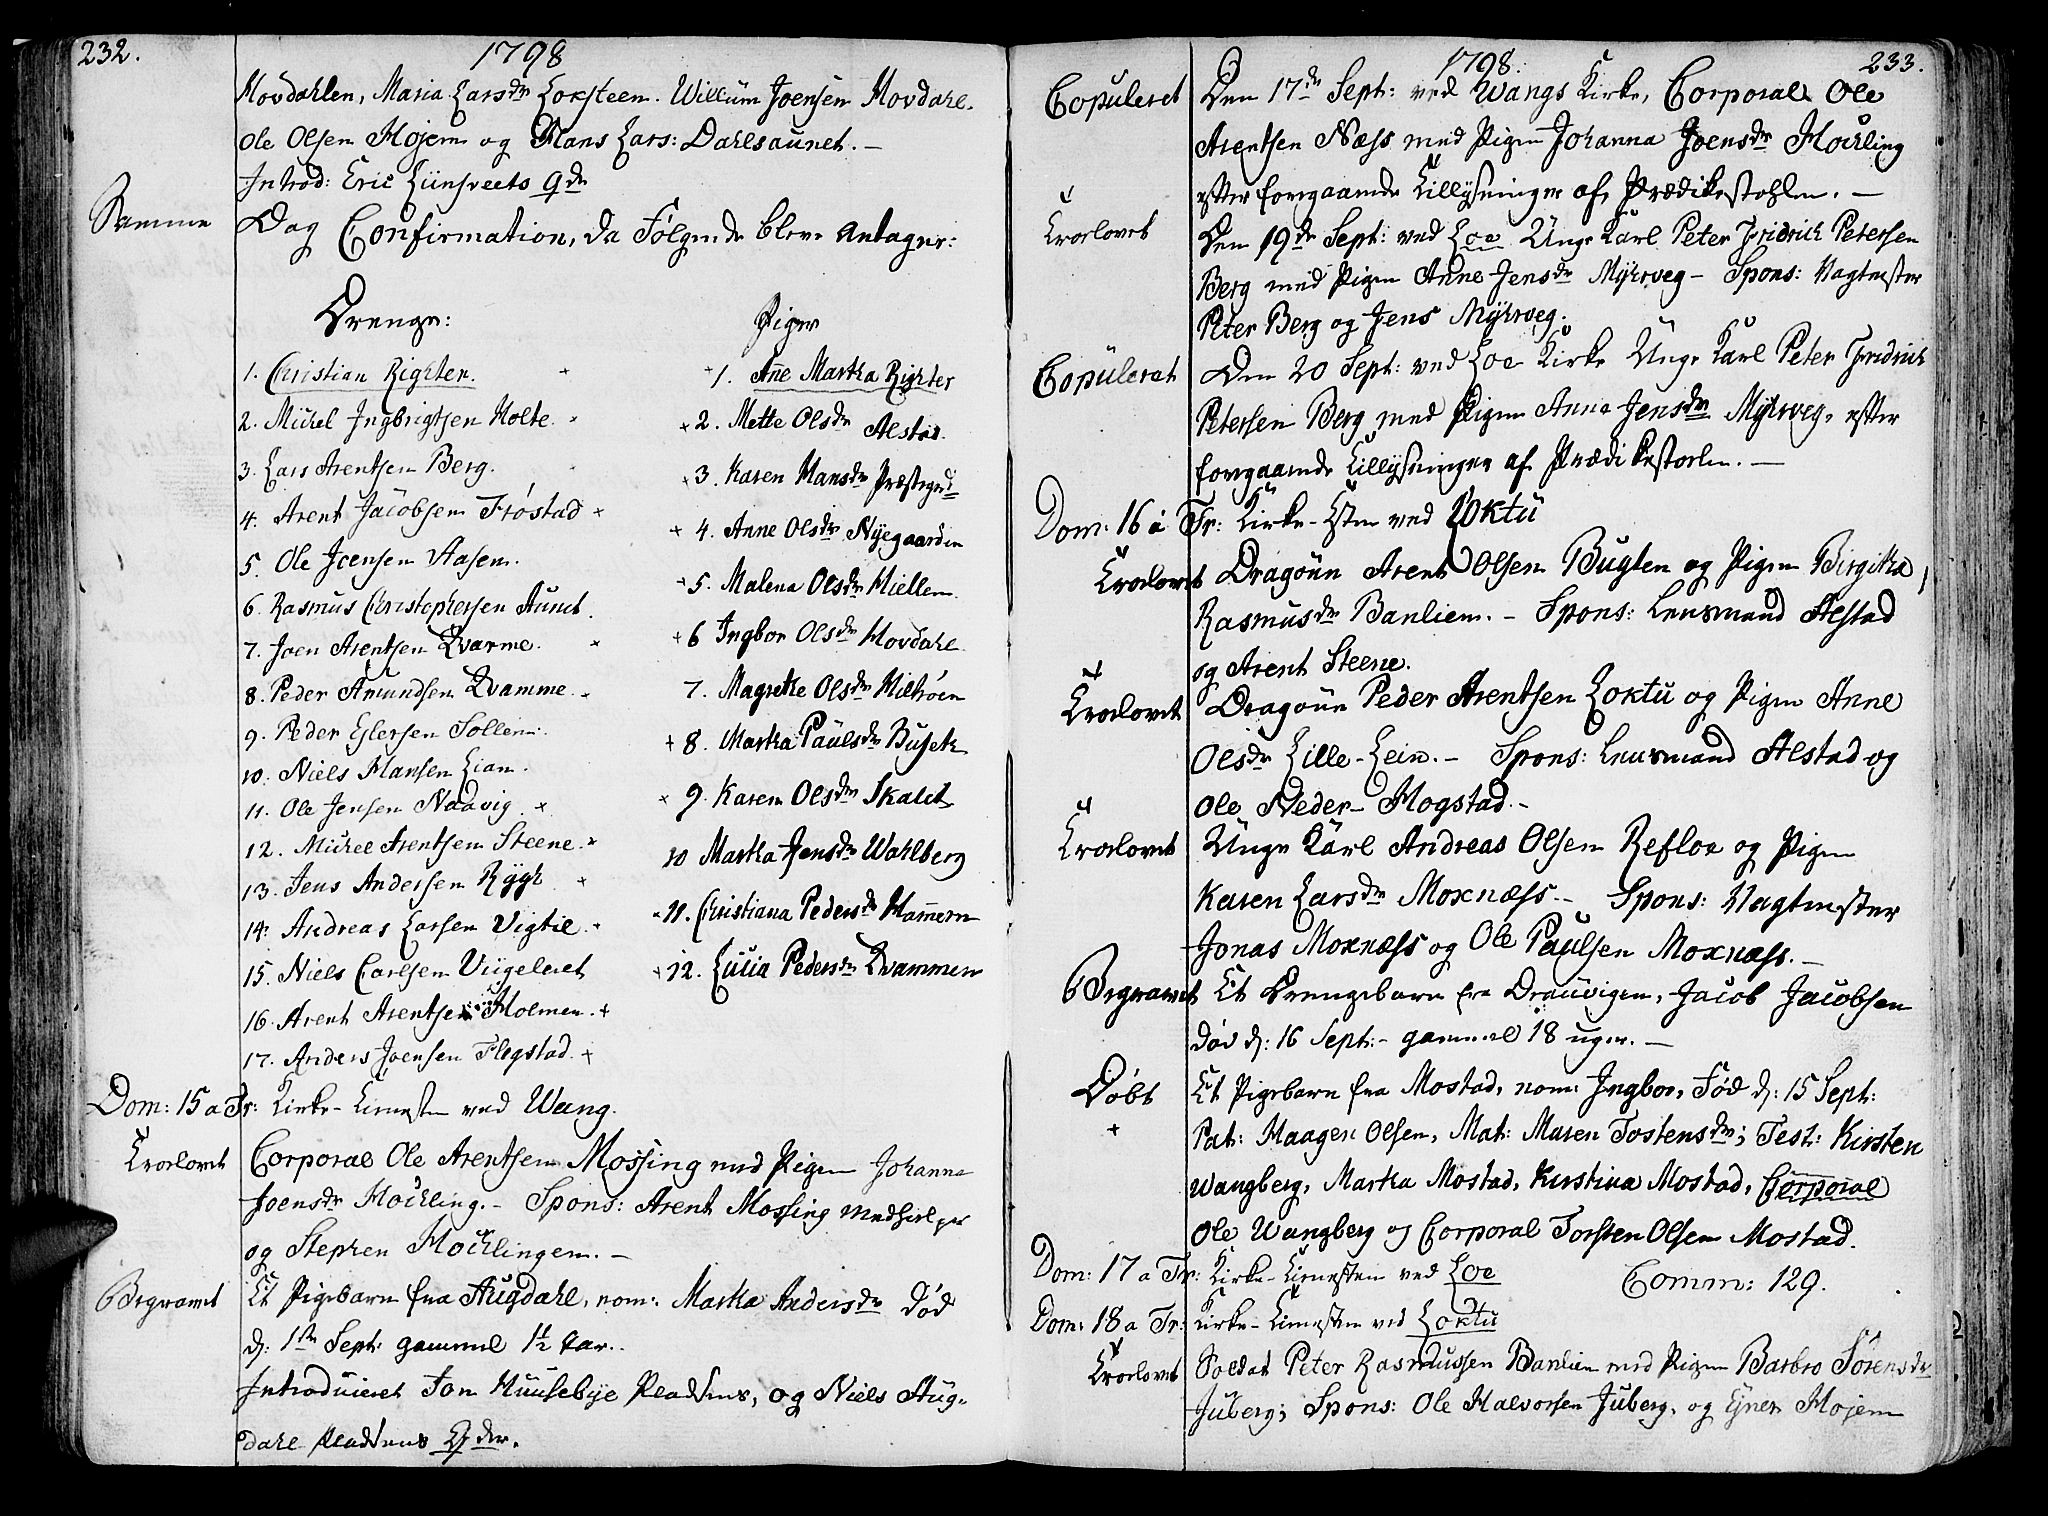 232.
1798
Hovdahlen, Maria Larsdr Loksteen. Willum Joensen Hovdahl.
Ole Olsen Mojem og Hans Lars: Dahlsaunet. —
Introd: Eric Lünsveets Qde
Samme Dag Confirmation, da Følgende bleve antagne:
Drenge:
1. Christian Righter.
2. Michel Ingbrigtsen Holte.
3. Lars Arentsen Berg.
4. Arent Jacobsen Frøstad
5. Ole Joensen Aasen.
6. Rasmus Christophersen Aunet.
7. Joen Arentsen Qvarme.
8. Peder Amundsen Qvamme.
9. Peder Eglersen Sollem.
10. Niels Hansen Lian.
11. Ole Jensen Naavig.
12. Michel Arentsen Steene.
13. Jens Andersen Rygh
14. Andreas Larsen Vigtil.
15. Niels Carlsen Viigeleret
16. Arent Arentsen Holmen.
17. Anders Joensen Flegstad.
Piger
1. Añe Martha Righter
2. Mette Olsdr Alstad.
3. Karen Hansdr Præstegrd
4. Anne Olsdr Nyegaarden
5. Malena Olsdr Hiellem
6 Ingbor Olsdr Hovdahl.
7. Magrethe Olsdr Hiltrøen
8. Martha Paülsdr Buseth
9. Karen Olsdr Skalet
10 Martha Jensdr Wahlberg
11. Christiana Pedersdr Ham̄ern
12. Lucia Pedersdr Qvammen
Dom: 15 a Tr: Kirke-Tienesten ved Wang.
Trolovet Corporal Ole Arentsen Mossing med Pigen Johanna
Joensdr Hoichling. – Spons: Arent Mossing Medhielper
og Stephen Hoichlingen. —
Begravet Et Pigebarn fra Augdahl, nom: Martha Andersdr Død
d: 1ste Sept: gammel 1½ Aar.
Introduceret Jon Huusebye Pladsens, og Niels Aug-
dahl Pladsens Qder.
1798.
233.
Copuleret Den 17de Sept: ved Wangs Kirke, Corporal Ole
Arentsen Næss med Pigen Johanna Joensdr Hoichling
efter foregaaende Tillysninger af Prædikestohlen. —
Trolovet Den 19de Sept: ved Loe Unge Karl Peter Fridrich Petersen
Berg med Pigen Anne Jensdr Myhrveg – Spons: Vagtmester
Peter Berg og Jens Myhrveg.
Copüleret Den 20 Sept: ved Loe Kirke Unge Karl Peter Fredrich
Petersen Berg med Pigen Anne Jensdr Myhrveg, efter
foregaaende Tillysninger af Prædikestolen. —
Dom: 16 a Tr: Kirke-Tsten ved Loktu
Trolovet Dragoun Arent Olsen Bugten og Pigen Birgitha
Rasmusdr Banliem. – Spons: Lensmand Alstad
og Arent Steene.
Trolovet Dragoun Peder Arentsen Loktu og Pigen Anne
Olsdr Lille-Lein. – Spons: Lensmand Alstad og
Ole Neder-Hogstad. –
Trolovet Unge Karl Andreas Olsen Refloe og Pigen
Karen Larsdr Moxnæss. – Spons: Vagtmester
Jonas Moxnæss og Ole Paulsen Moxnæss. –
Begravet Et Drengebarn fra Drauvigen, Jacob Jacobsen
død d: 16 Sept: – gammel 18 uger. —
Døbt Et Pigebarn fra Mostad, nom: Ingbor, Fød d: 15 Sept:
Pat: Haagen Olsen, Mat: Maren Tostensdr; Test: Kirsten
Wangberg, Martha Mostad, Kirstina Mostad, Corporal
Ole Wangberg og Corporal Torsten Olsen Mostad.
Dom: 17 a Tr: Kirke-Tienesten ved Loe Comm: 129.
Dom: 18 a Tr: Kirke-Tienesten ved Loktu
Trolovet Soldat Peter Rasmussen Banlien med Pigen Barbro Sørensdr
Juberg; Spons: Ole Halvorsen Juberg, og Ejner Mojem